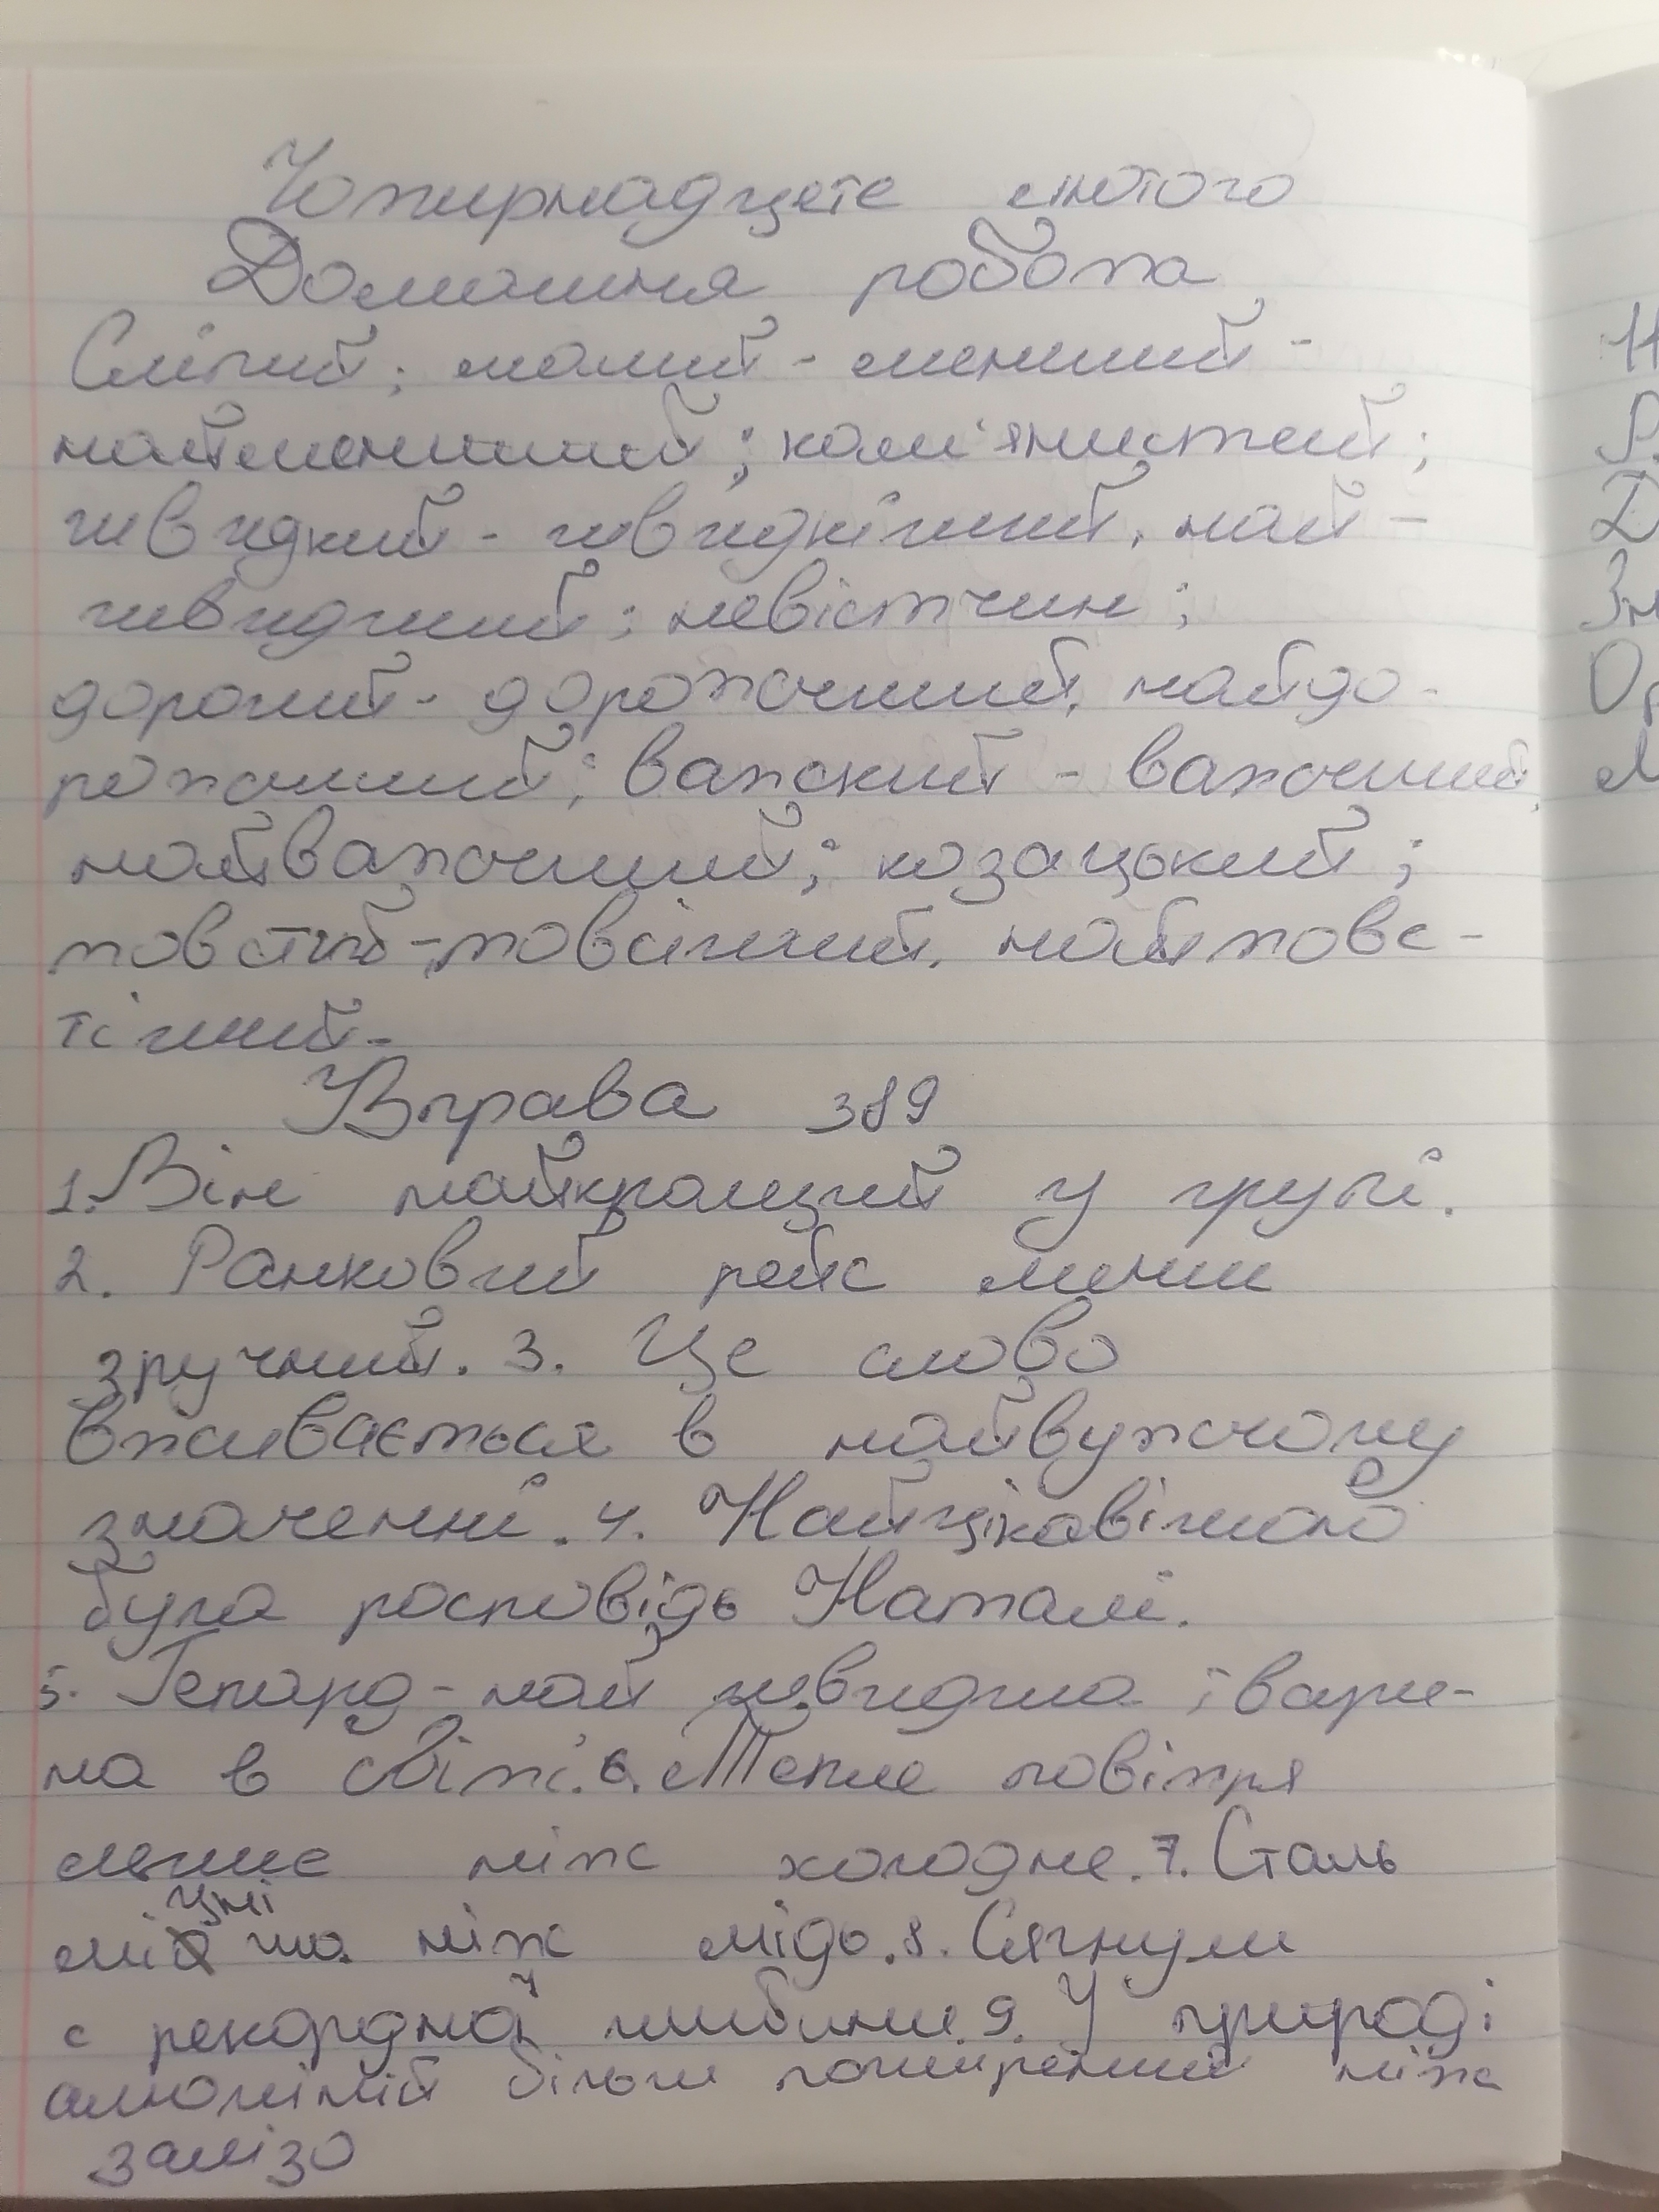 Чотирнадцяте лютого
Домашня робота
Сліпий; малий - менший -
найменший; кам'янистий;
швидкий - швидкіший, най-
швидший; невістчин;
дорогий - дорожчий, найдо-
рожчий; важкий - важчий,
найважчий; козацький;
товстий - товсіший, найтовс-
тіший.
Вправа 389
1. Він найкращий у групі.
2. Ранковий рейс менш
зручний. 3. Це слово
вживається в найвужчому
значенні. 4. Найцікавішою
була росповідь Наталі.
5. Гепард - най швидша твари-
на в світі. 6. Тепле повітря
легше ніж холодне. 7. Сталь
міцніша ніж мідь. 8. Сягнули
с рекордної глибини. 9. У природі
алюміній більш поширений ніж
залізо
Н
Р.
Д
Зм
Ор
М